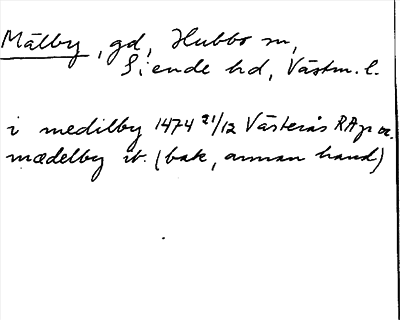 Mälby, gd, Hubbo sn,
Siende hd, Västm. l.
i medilby 1474 21/12 Västerås RAp or.
mædelby ib. (bak, annan hand)